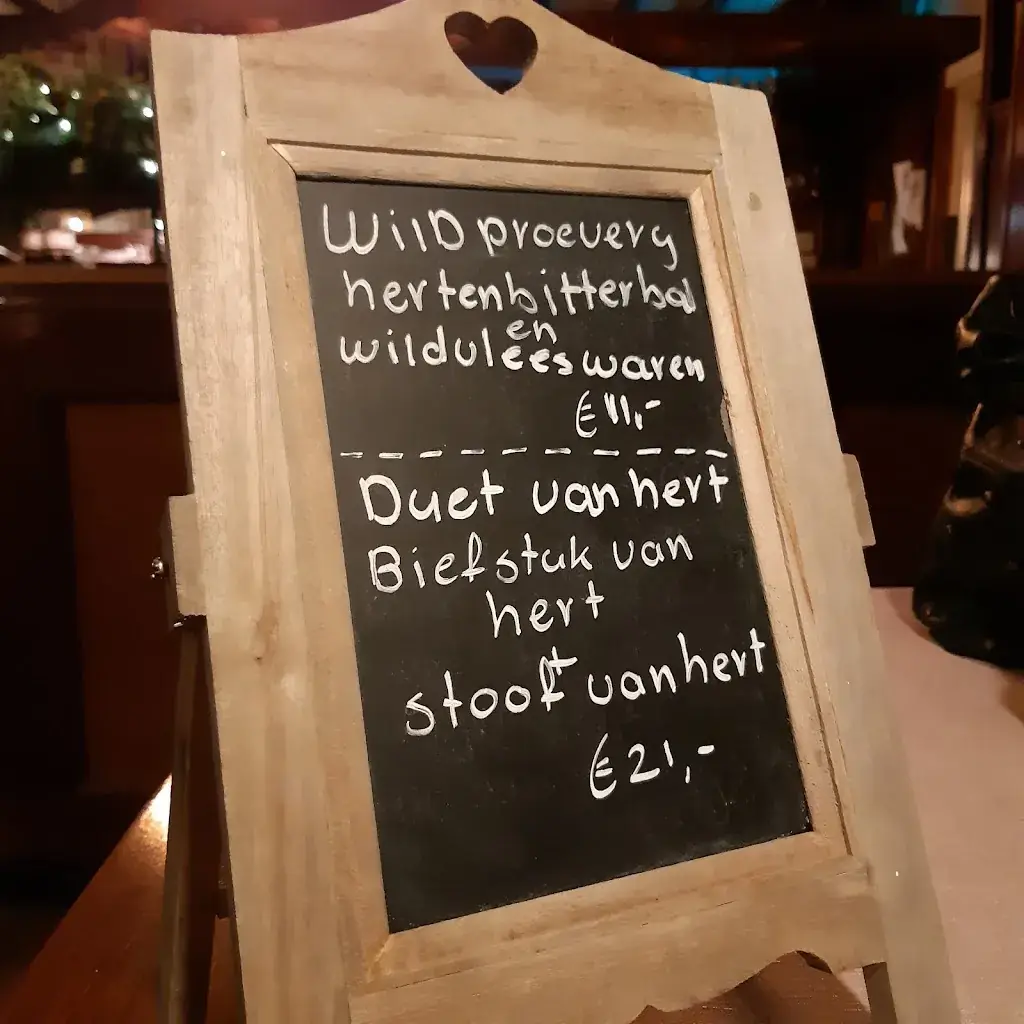 Wild proeverij
hertenbitterbal
en
wildvleeswaren
€ 11,-
Duet van hert
Biefstuk van
hert
+
stoof van hert
€ 21,-